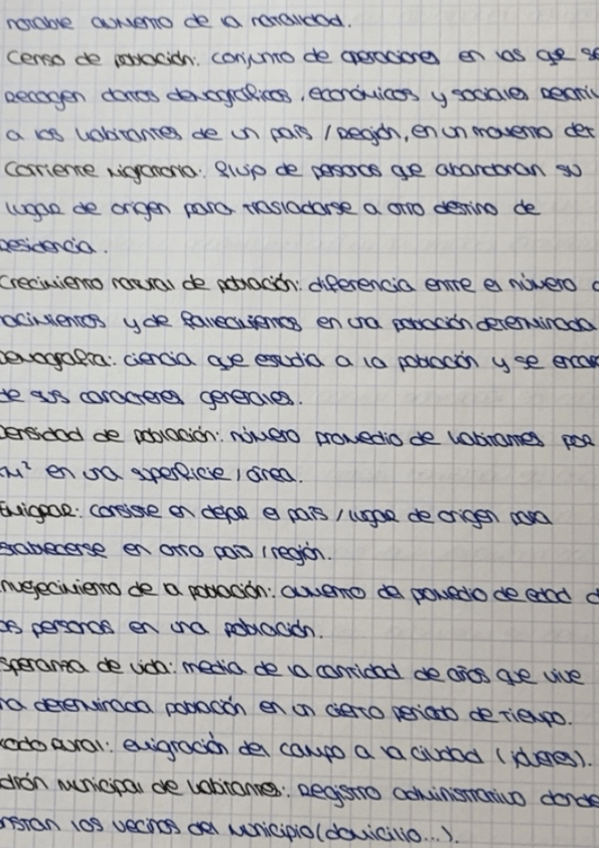 notable aumento de la natalidad.
Censo de población: conjunto de operaciones en las que se
recogen datos demográficos, económicos y sociales
a los habitantes de un país / región, en un momento det
Corriente migratoria: flujo de personas que abandonan su
lugar de origen para trasladarse a otro destino de
residencia.
Crecimiento natural de población: diferencia entre el número d
nacimientos y de fallecimientos en una población determinada
Demografía: ciencia que estudia a la población y se encar
de sus caracteres generales.
Densidad de población: número promedio de habitantes por
km² en una superficie / área.
Emigrar: consiste en dejar el país / lugar de origen para
establecerse en otro país / región.
Envejecimiento de la población: aumento del promedio de edad d
las personas en una población.
Esperanza de vida: media de la cantidad de años que vive
una determinada población en un cierto periodo de tiempo.
Éxodo rural: emigración del campo a la ciudad (jóvenes).
Padrón municipal de habitantes: registro administrativo donde
constan los vecinos del municipio (domicilio...).